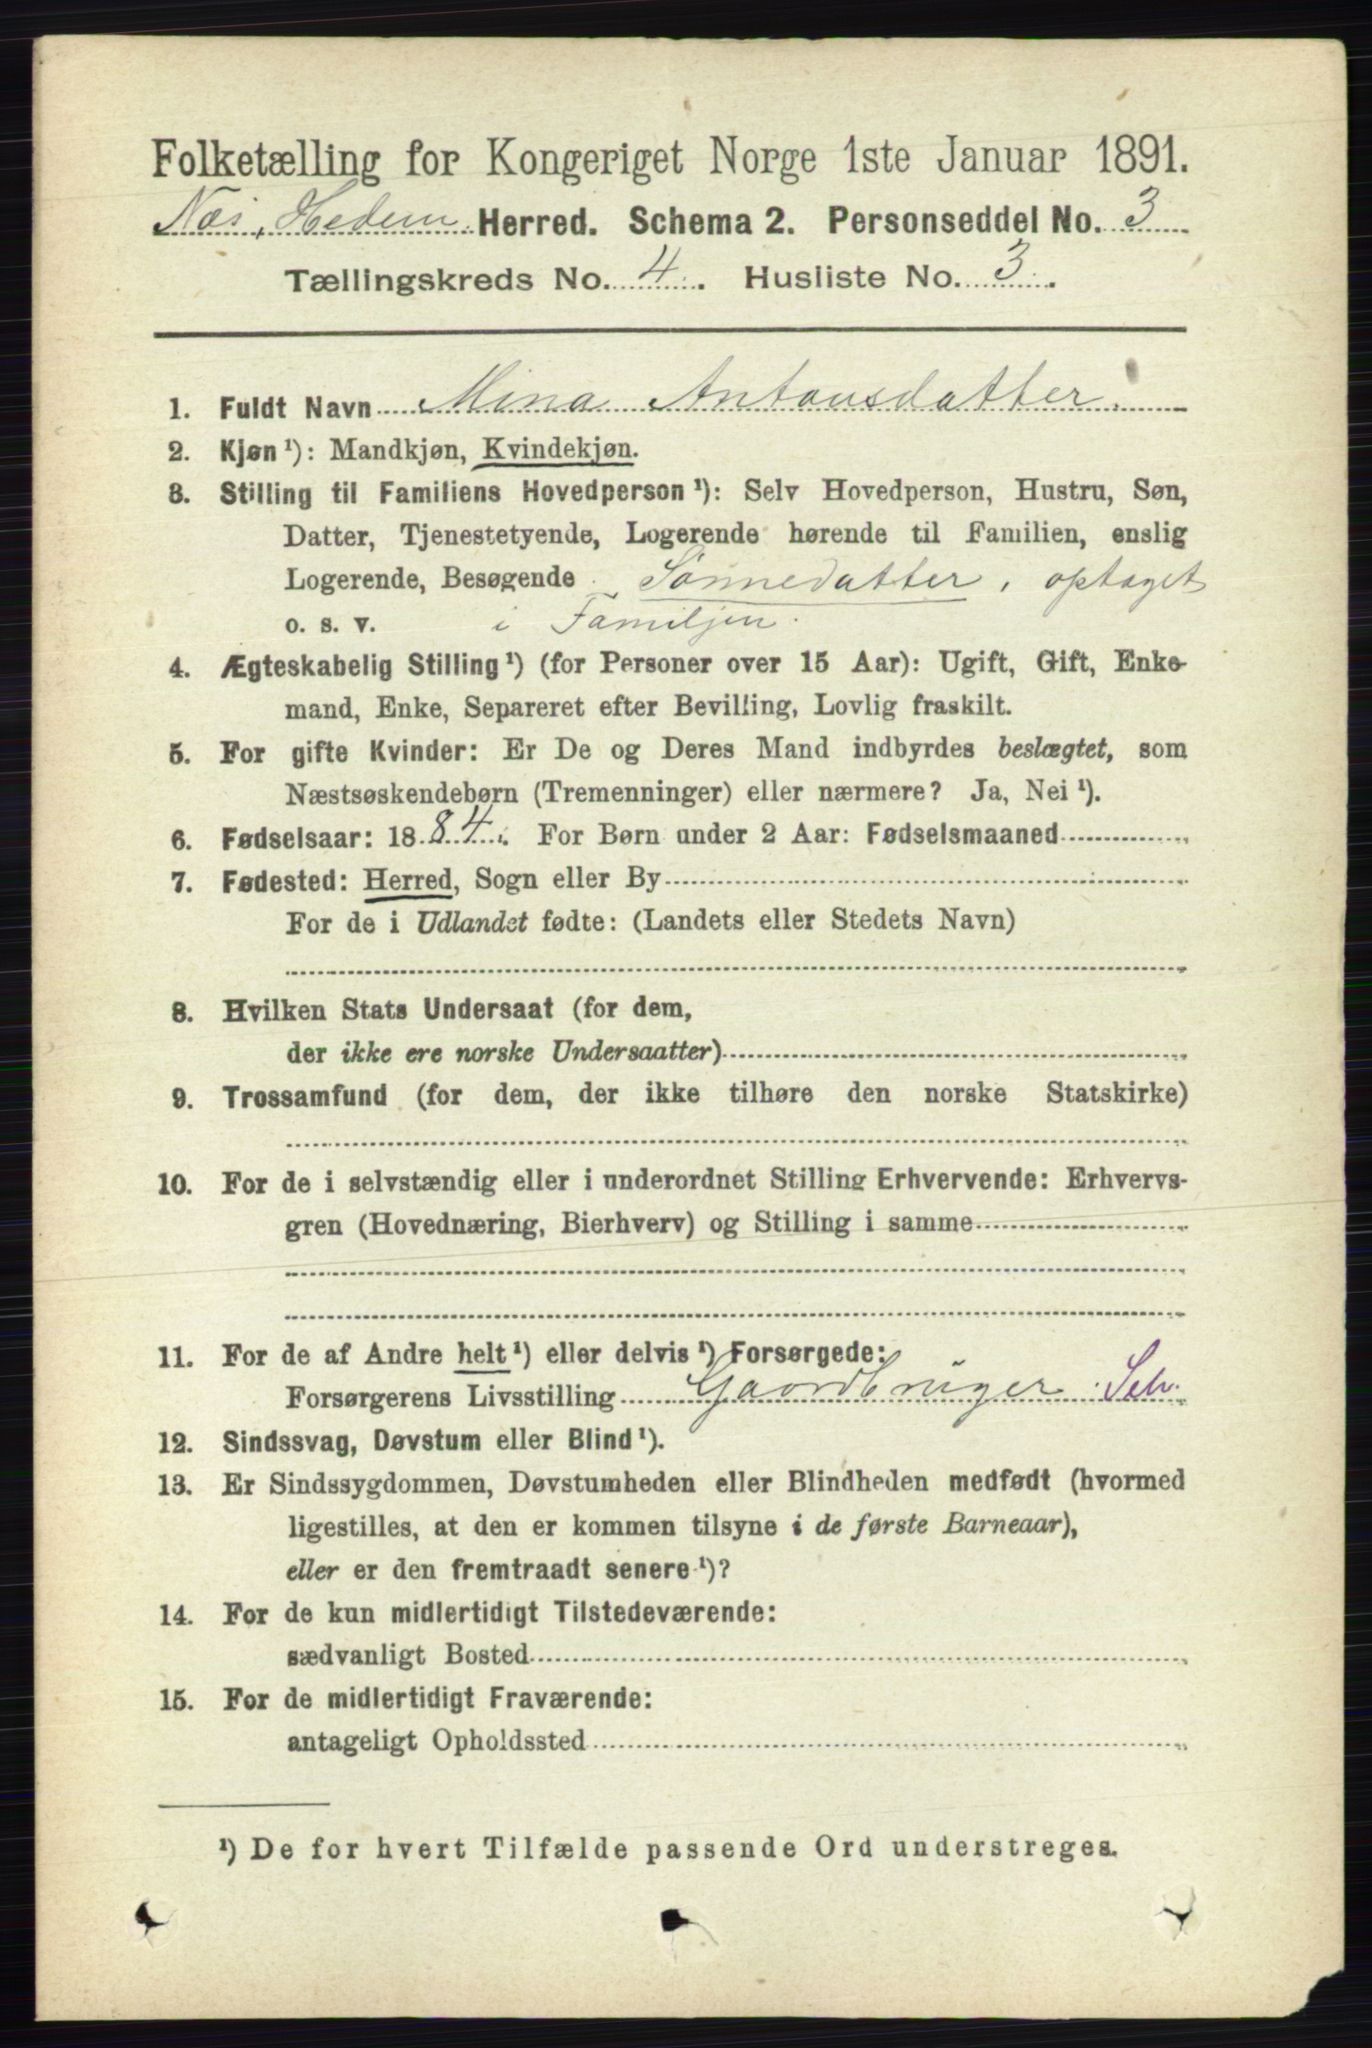 Folketælling for Kongeriget Norge 1ste Januar 1891.
Næs, Hedem. Herred. Schema 2. Personseddel No. 3
Tællingskreds No. 4. Husliste No. 3.
1. Fuldt Navn Mina Antonsdatter.
2. Kjøn¹): Mandkjøn, Kvindekjøn.
3. Stilling til Familiens Hovedperson¹): Selv Hovedperson, Hustru, Søn,
Datter, Tjenestetyende, Logerende hørende til Familien, enslig
Logerende, Besøgende Sønnedatter, optaget
o. s. v. i Familjen.
4. Ægteskabelig Stilling¹) (for Personer over 15 Aar): Ugift, Gift, Enke-
mand, Enke, Separeret efter Bevilling, Lovlig fraskilt.
5. For gifte Kvinder: Er De og Deres Mand indbyrdes beslægtet, som
Næstsøskendebørn (Tremenninger) eller nærmere? Ja, Nei¹).
6. Fødselsaar: 1884. For Børn under 2 Aar: Fødselsmaaned
7. Fødested: Herred, Sogn eller By
For de i Udlandet fødte: (Landets eller Stedets Navn)
8. Hvilken Stats Undersaat (for dem,
der ikke ere norske Undersaatter)
9. Trossamfund (for dem, der ikke tilhøre den norske Statskirke)
10. For de i selvstændig eller i underordnet Stilling Erhvervende: Erhvervs-
gren (Hovednæring, Bierhverv) og Stilling i samme
11. For de af Andre helt¹) eller delvis¹) Forsørgede:
Forsørgerens Livsstilling Gaardbruger Selv.
12. Sindssvag, Døvstum eller Blind¹).
13. Er Sindssygdommen, Døvstumheden eller Blindheden medfødt (hvormed
ligestilles, at den er kommen tilsyne i de første Barneaar),
eller er den fremtraadt senere¹)?
14. For de kun midlertidigt Tilstedeværende:
sædvanligt Bosted
15. For de midlertidigt Fraværende:
antageligt Opholdssted
¹) De for hvert Tilfælde passende Ord understreges.